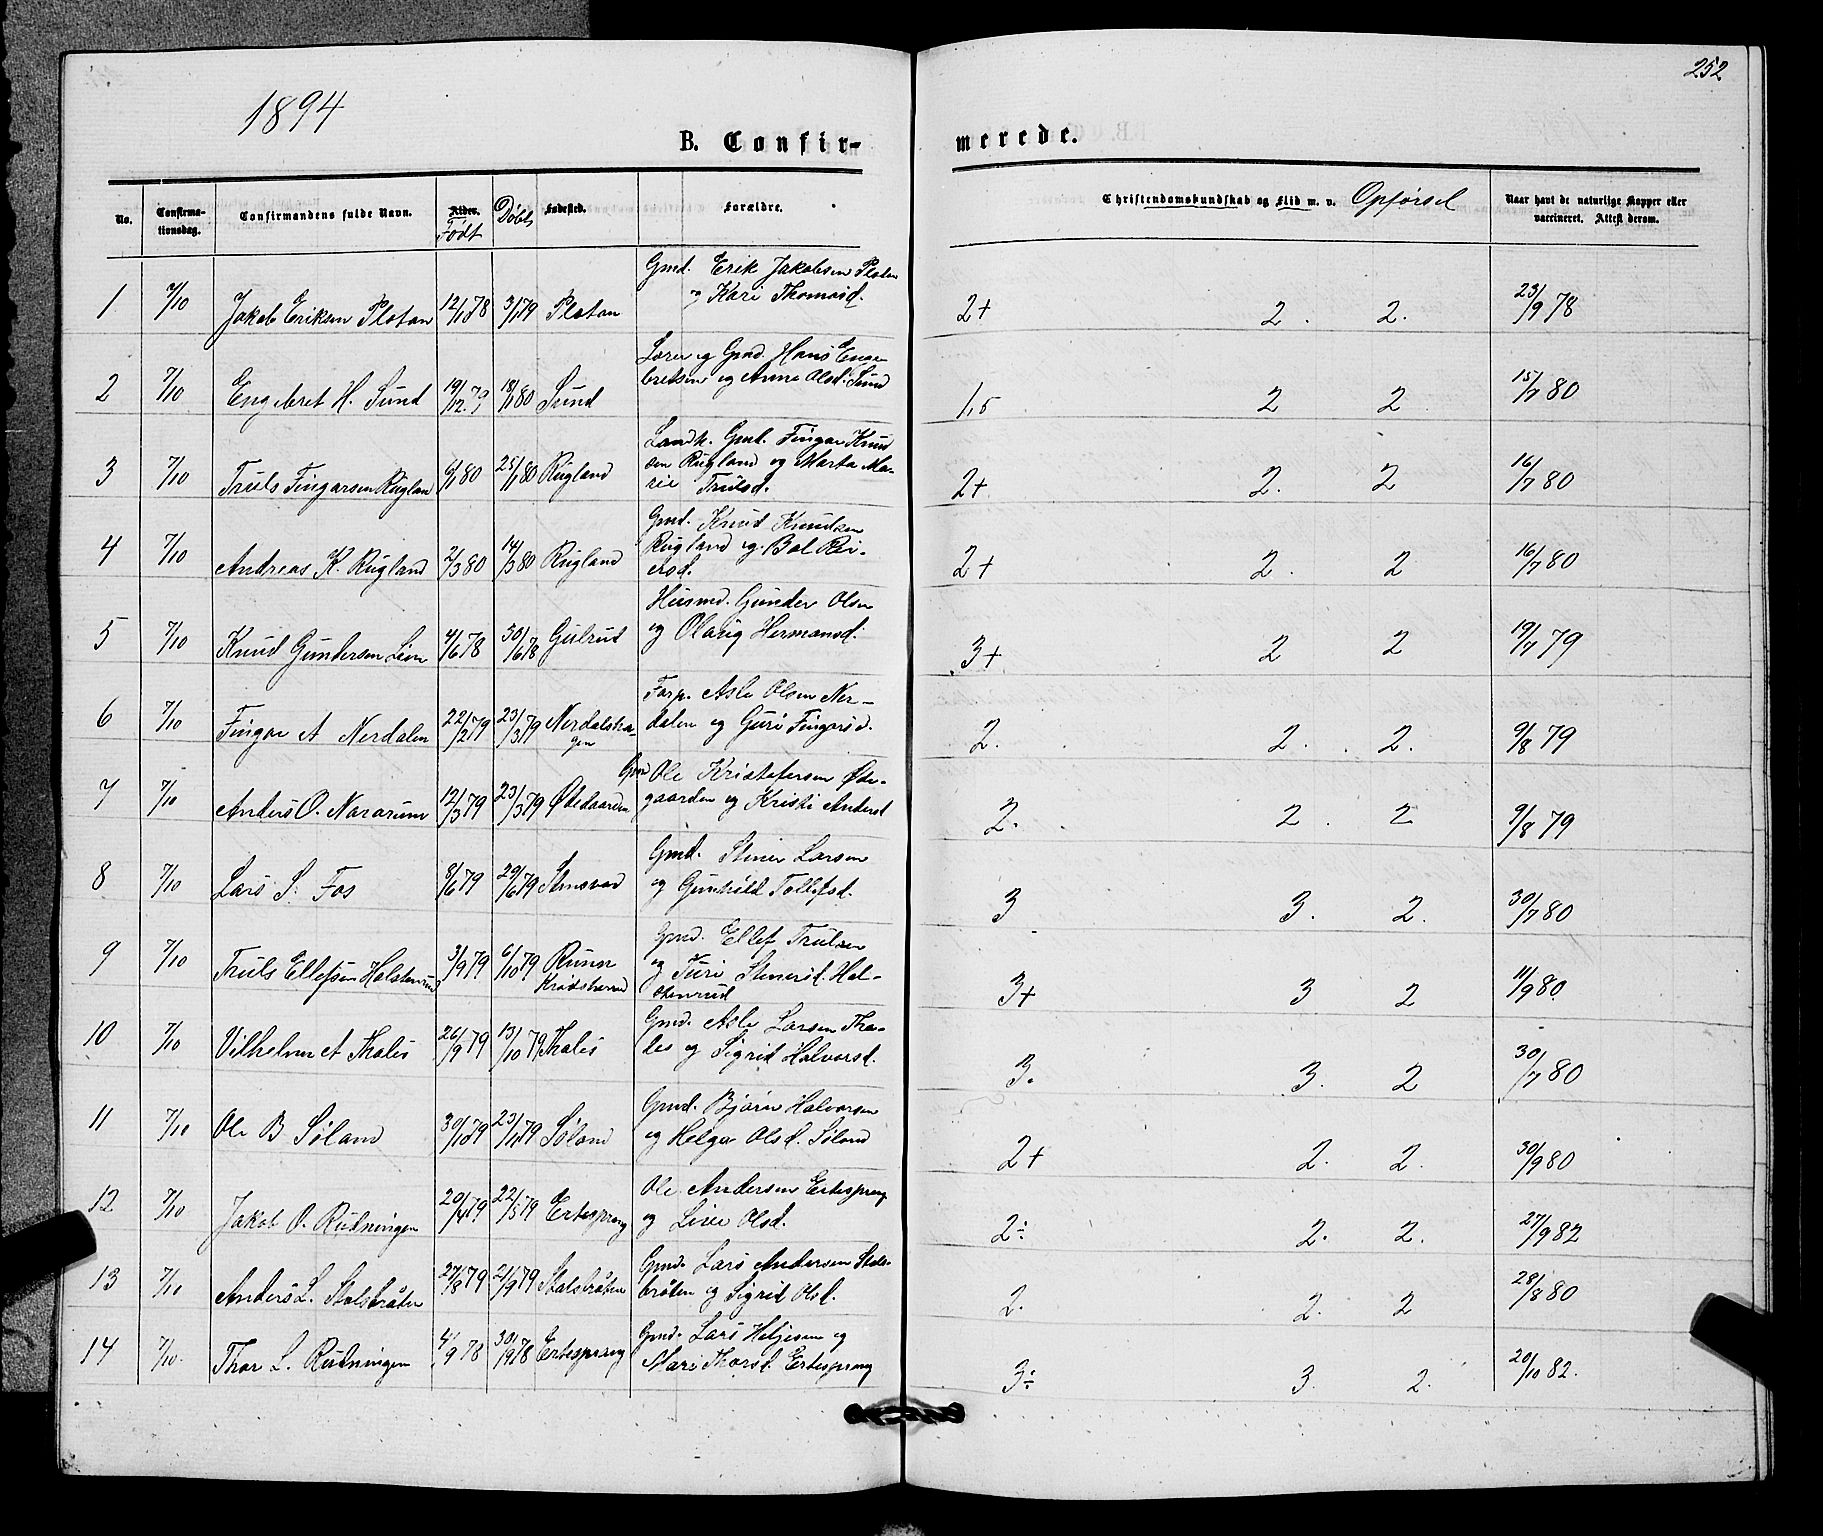 252
1894
B. Confir-
merede.
No.
Confirma-
tionsdag.
Confirmandens fulde Navn.
Alder.
Født
Døbt
Fødested.
Forældre.
Christendomskundskab og Flid m. v. Opførsel
Naar havt de naturlige Kopper eller
vaccineret. Attest derom.
Gmd. Erik Jakobsen Plotan
og Kari Thomasd.
1 7/10 Jakob Eriksen Plotan 12/1 78 3/1 79 Plotan 2+ 2. 2. 23/9 78
Lærer og Gmd. Hans Enge-
bretsen og Anne Olsd. Sund
2 7/10 Engebret H. Sund 19/12 79 18/1 80 Sund 1,5 2 2 15/7 80
Landh. Gmd. Fingar Knud
sen Rugland og Marta Ma-
rie Trulsd.
3 7/10 Truls Fingarsen Ruglan 6/1 80 25/1 80 Rugland 2+ 2. 2 16/7 80
Gmd. Knud Knudsen
Rugland og Bol Rei-
ersd.
4 7/10 Andreas K. Rugland 2/3 80 14/3 80 Rugland 2+ 2. 2 16/7 80
Husmd. Gunder Olsen
og Olaug Hermansd.
5 7/10 Knud Gundersen Lien 4/6 78 30/6 78 Gulrud 3+ 2 2 19/7 79
Forp. Asle Olsen Ner-
dalen og Guri Fingarsd.
6 7/10 Fingar A Nerdalen 22/2 79 23/3 79 Nerdalsha-
gen 2. 2. 2. 9/8 79
Gmd Ole Kristofersen Øde-
gaarden og Kristi Andersd
7 7/10 Anders O. Nararum 12/3 79 23/3 79 Ødegaarden 2. 2. 2 9/8 79
Gmd. Stener Larsen
og Gunhild Tollefsd.
8 7/10 Lars S. Fos 8/6 79 29/6 79 3 3. 2. 30/7 80
Gmd. Ellef Trulsen
og Turi Stenersd. Hol-
stenrud
9 7/10 Truls Ellefsen Holstenrud 3/9 79 6/10 79
Kradsherred 3+ 3 2 11/9 80
Gmd. Asle Larsen Tha-
les og Sigrid Halvorsd.
10 7/10 Vilhelm A Thales 26/9 79 13/10 79 Thales 3. 3. 2 30/7 80
Gmd. Bjørn Halvorsen
og Helga Olsd. Søland
11 7/10 Ole B Søland 30/10 79 23/11 79 Søland 2+ 2. 2. 30/9 80
Ole Andersen Ertesprang
og Lise Olsd.
12 7/10 Jakob O. Rudningen 20/4 79 22/5 79 Ertesprang 2÷ 2. 2. 27/9 82
Gmd. Lars Andersen Stals-
bråten og Sigrid Olsd.
13 7/10 Anders L. Stalsbråten 27/8 79 21/9 79 Stalsbråten 2. 2. 2 28/8 80
Gmd. Lars Heljesen og
Mari Thorsd. Ertesprang
14 7/10. Thor L. Rudningen 4/9 78 Ertesprang 3÷ 3. 2. 20/10 82.